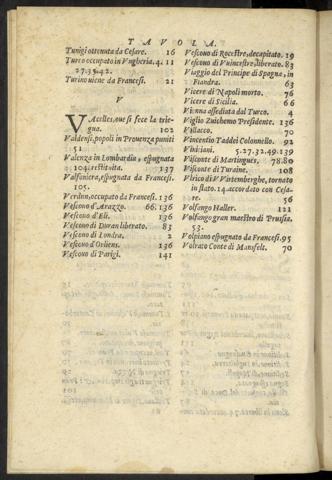 TAVOLA.
Tunigi ottenuta da Cesare. 16
Turco occupato in Vngheria. 4. 11
27. 35. 42.
Turino viene da Francesi. 21
V
VAcelles, oue si fece la trie-
gua. 102
Valdensi, popoli in Prouenza puniti
51
Valenza in Lombardia, espugnata
104. restituita. 137
Valfoniera, espugnata da Francesi.
105.
Verduno, occupato da Francesi. 136
Vescouo d'Arazzo. 66. 136
Vescouo d'Eli. 136
Vescouo di Duran liberato. 83
Vescouo di Londra. 2
Vescouo d'Orliens. 136
Vescouo di Parigi. 141
Vescouo di Rocestre, decapitato. 19
Vescouo di Vuincestre, liberato. 83
Viaggio del Principe di Spagna, in
Fiandra. 63
Vicere di Napoli morto. 76
Vicere di Sicilia. 66
Vienna assediata dal Turco. 4
Viglio Zuichemo Presidente. 136
Villacco. 70
Vincentio Taddei Colonnello. 92
Viniziani. 5. 27. 32. 49. 139
Visconte di Martingues, 78. 80
Visconte di Turaine. 108
Vlrico di VVirtemberghe, tornato
in stato. 14. accordato con Cesa-
re. 56
Volfango Haller. 121
Volfango gran maestro di Prussia.
53.
Volpiano espugnato da Francesi. 95
Volrato Conte di Mansfelt. 70